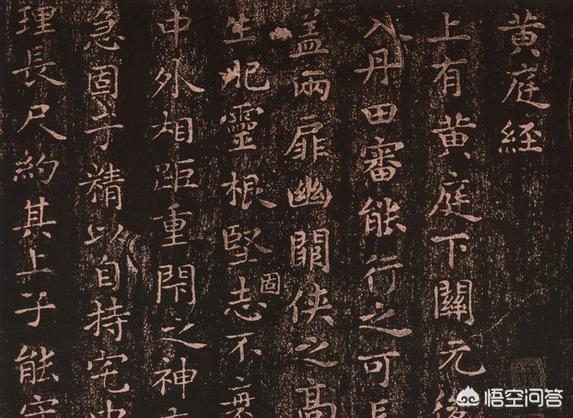 黄庭經
上有黄庭下關元後
入丹田審能行之可長
盖兩扉幽闕俠之高
生牝靈根堅固志不衰
中外相距重閇之神
急固子精以自持宅
理長尺約其上子能守
悟空问答